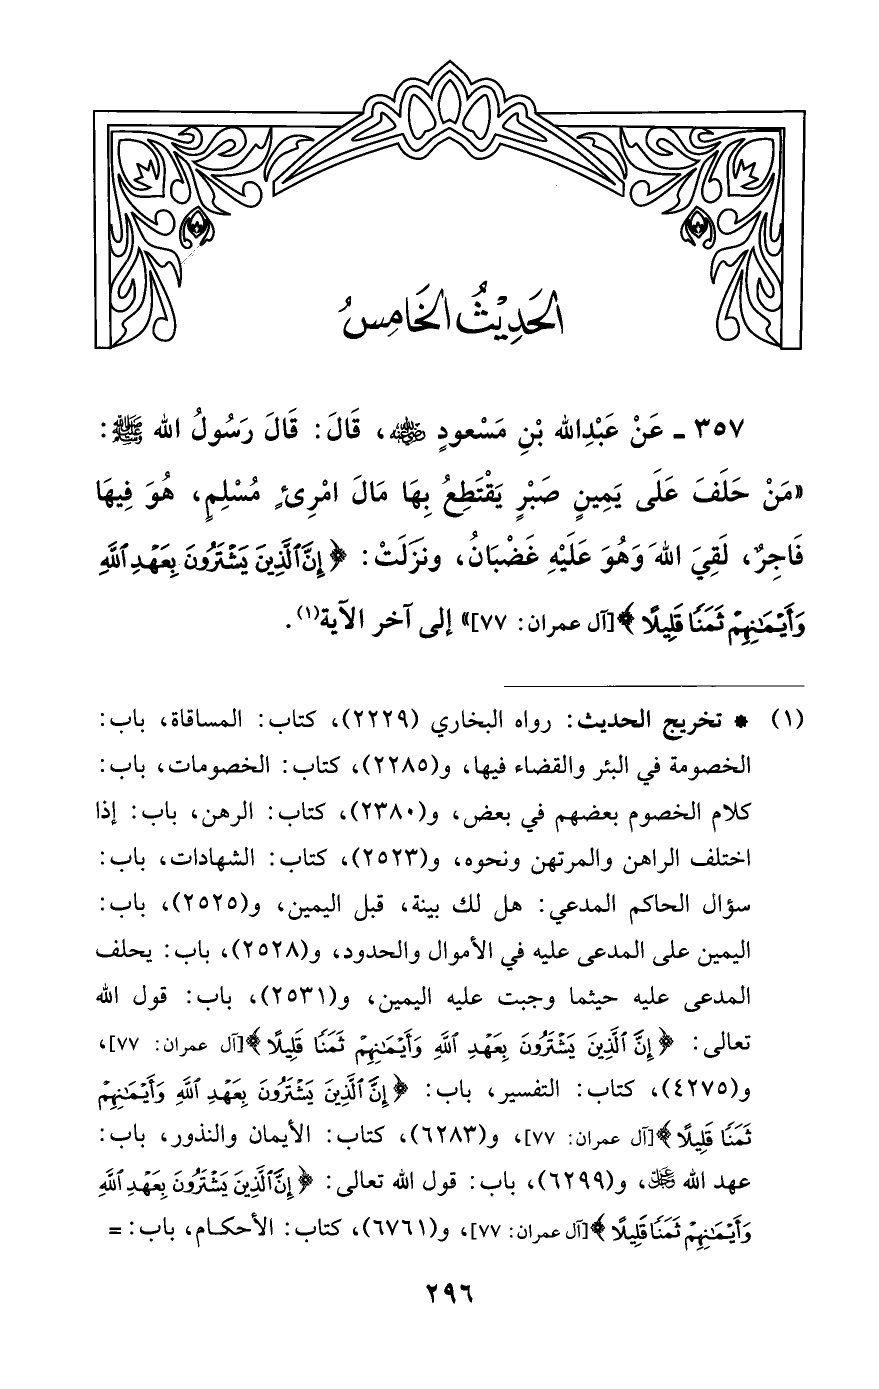 الحَدِيْثُ الخَامِسُ
٣٥٧ ـ عَنْ عَبْدِالله بْنِ مَسْعودٍ ﵁، قَالَ: قَالَ رَسُولُ الله ﷺ:
«مَنْ حَلَفَ عَلَى يَمِينِ صَبْرٍ يَقْتَطِعُ بِهَا مَالَ امْرِئٍ مُسْلِمٍ، هُوَ فِيهَا
فَاجِرٌ، لَقِيَ اللهَ وَهُوَ عَلَيْهِ غَضْبَانُ، ونَزَلَتْ: ﴿إِنَّ ٱلَّذِينَ يَشْتَرُونَ بِعَهْدِ ٱللَّهِ
وَأَيْمَٰنِهِمْ ثَمَنًا قَلِيلًا﴾[آل عمران: ٧٧]» إلى آخر الآية(١).
(١) * تخريج الحديث: رواه البخاري (٢٢٢٩)، كتاب: المساقاة، باب:
الخصومة في البئر والقضاء فيها، و(٢٢٨٥)، كتاب: الخصومات، باب:
كلام الخصوم بعضهم في بعض، و(٢٣٨٠)، كتاب: الرهن، باب: إذا
اختلف الراهن والمرتهن ونحوه، و(٢٥٢٣)، كتاب: الشهادات، باب:
سؤال الحاكم المدعي: هل لك بينة، قبل اليمين، و(٢٥٢٥)، باب:
اليمين على المدعى عليه في الأموال والحدود، و(٢٥٢٨)، باب: يحلف
المدعى عليه حيثما وجبت عليه اليمين، و(٢٥٣١)، باب: قول الله
تعالى: ﴿إِنَّ ٱلَّذِينَ يَشْتَرُونَ بِعَهْدِ ٱللَّهِ وَأَيْمَٰنِهِمْ ثَمَنًا قَلِيلًا﴾[آل عمران: ٧٧]،
و(٤٢٧٥)، كتاب: التفسير، باب: ﴿إِنَّ ٱلَّذِينَ يَشْتَرُونَ بِعَهْدِ ٱللَّهِ وَأَيْمَٰنِهِمْ
ثَمَنًا قَلِيلًا﴾[آل عمران: ٧٧]، و(٦٢٨٣)، كتاب: الأيمان والنذور، باب:
عهد الله ﷿، و(٦٢٩٩)، باب: قول الله تعالى: ﴿إِنَّ ٱلَّذِينَ يَشْتَرُونَ بِعَهْدِ ٱللَّهِ
وَأَيْمَٰنِهِمْ ثَمَنًا قَلِيلًا﴾[آل عمران: ٧٧]، و(٦٧٦١)، كتاب: الأحكام، باب: =
٢٩٦